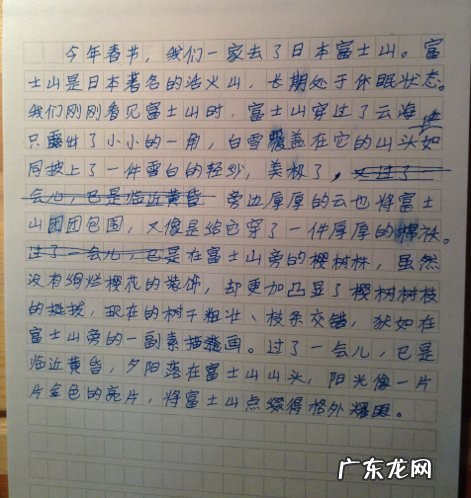 今年春节，我们一家去了日本富士山。富
士山是日本著名的活火山，长期处于休眠状态。
我们刚刚看见富士山时，富士山穿过了云海
只露出了小小的一角，白雪覆盖在它的山头如
同披上了一件雪白的轻纱，美极了，又过了一
会儿，已是临近黄昏 旁边厚厚的云也将富士
山团团包围，又像是给它穿了一件厚厚的棉袄。
过了一会儿，已是在富士山旁的樱树林，虽然
没有绚烂樱花的装饰，却更加凸显了樱树树枝
的，现在的树干粗壮、枝条交错，犹如在
富士山旁的一副素描画。过了一会儿，已是
临近黄昏，夕阳落在富士山山头，阳光像一片
片金色的亮片，将富士山点缀得格外耀眼。
广东龙网